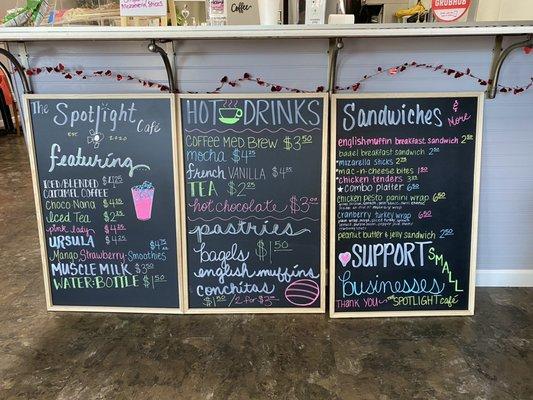 Coffee
GRUBHUB
The Spotlight Café
EST. 2020
featuring
ICED/BLENDED $4.25
CARAMEL COFFEE
Choco Nana $4.25
Iced Tea $2.25
pink lady $4.25
URSULA $4.25
$4.75
Mango Strawberry Smoothies
MUSCLE MILK $3.50
WATER BOTTLE $1.50
HOT DRINKS
COFFEE MED BREW $3.50
mocha $4.25
french VANILLA $4.25
TEA $2.25
hot chocolate $3.00
pastries
$1.50
bagels
english muffins
conchitas $1.50 / 2 for $3.00
SANDWICHES & More
english muffin breakfast sandwich 2.50
bagel breakfast sandwich 2.50
mozarella sticks 2.75
mac-n-cheese bites 1.50
chicken tenders
combo platter 6.50
chicken pesto panini wrap 6.50
cranberry turkey wrap 6.50
peanut butter & jelly sandwich 2.50
SUPPORT SMALL
Businesses
THANK YOU SPOTLIGHT café